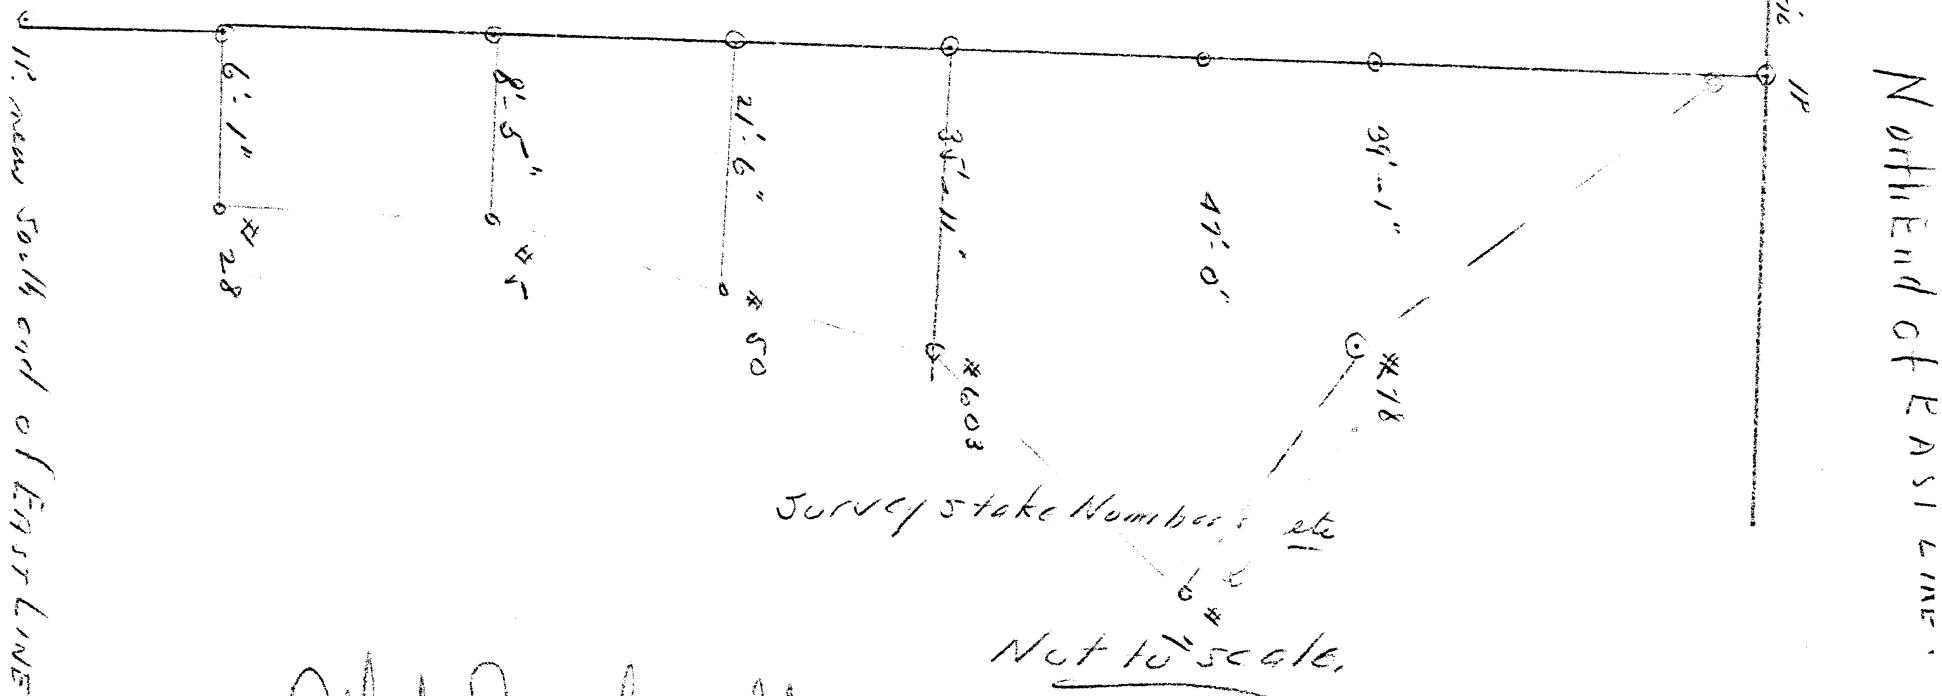 IP. near South end of EAST LINE
6'-1"
#28
8'-5"
#5
21'-6"
#50
35'-11"
#603
47'-0"
#1
39'-1"
#78
IP
North End of EAST LINE.
Survey stake Numbers etc
Not to scale.